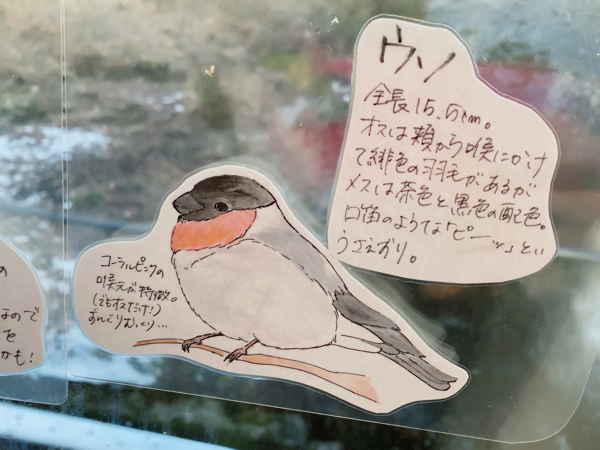 ウソ
全長15.5cm。
オスは頬から喉にかけ
て緋色の羽毛があるが
メスは茶色と黒色の配色。
口笛のような「ピーッ」とい
うさえずり。
コーラルピンクの
喉元が特徴。
(でもオスだけ!)
ずんぐりむっくり…
の
なので
を
かも!